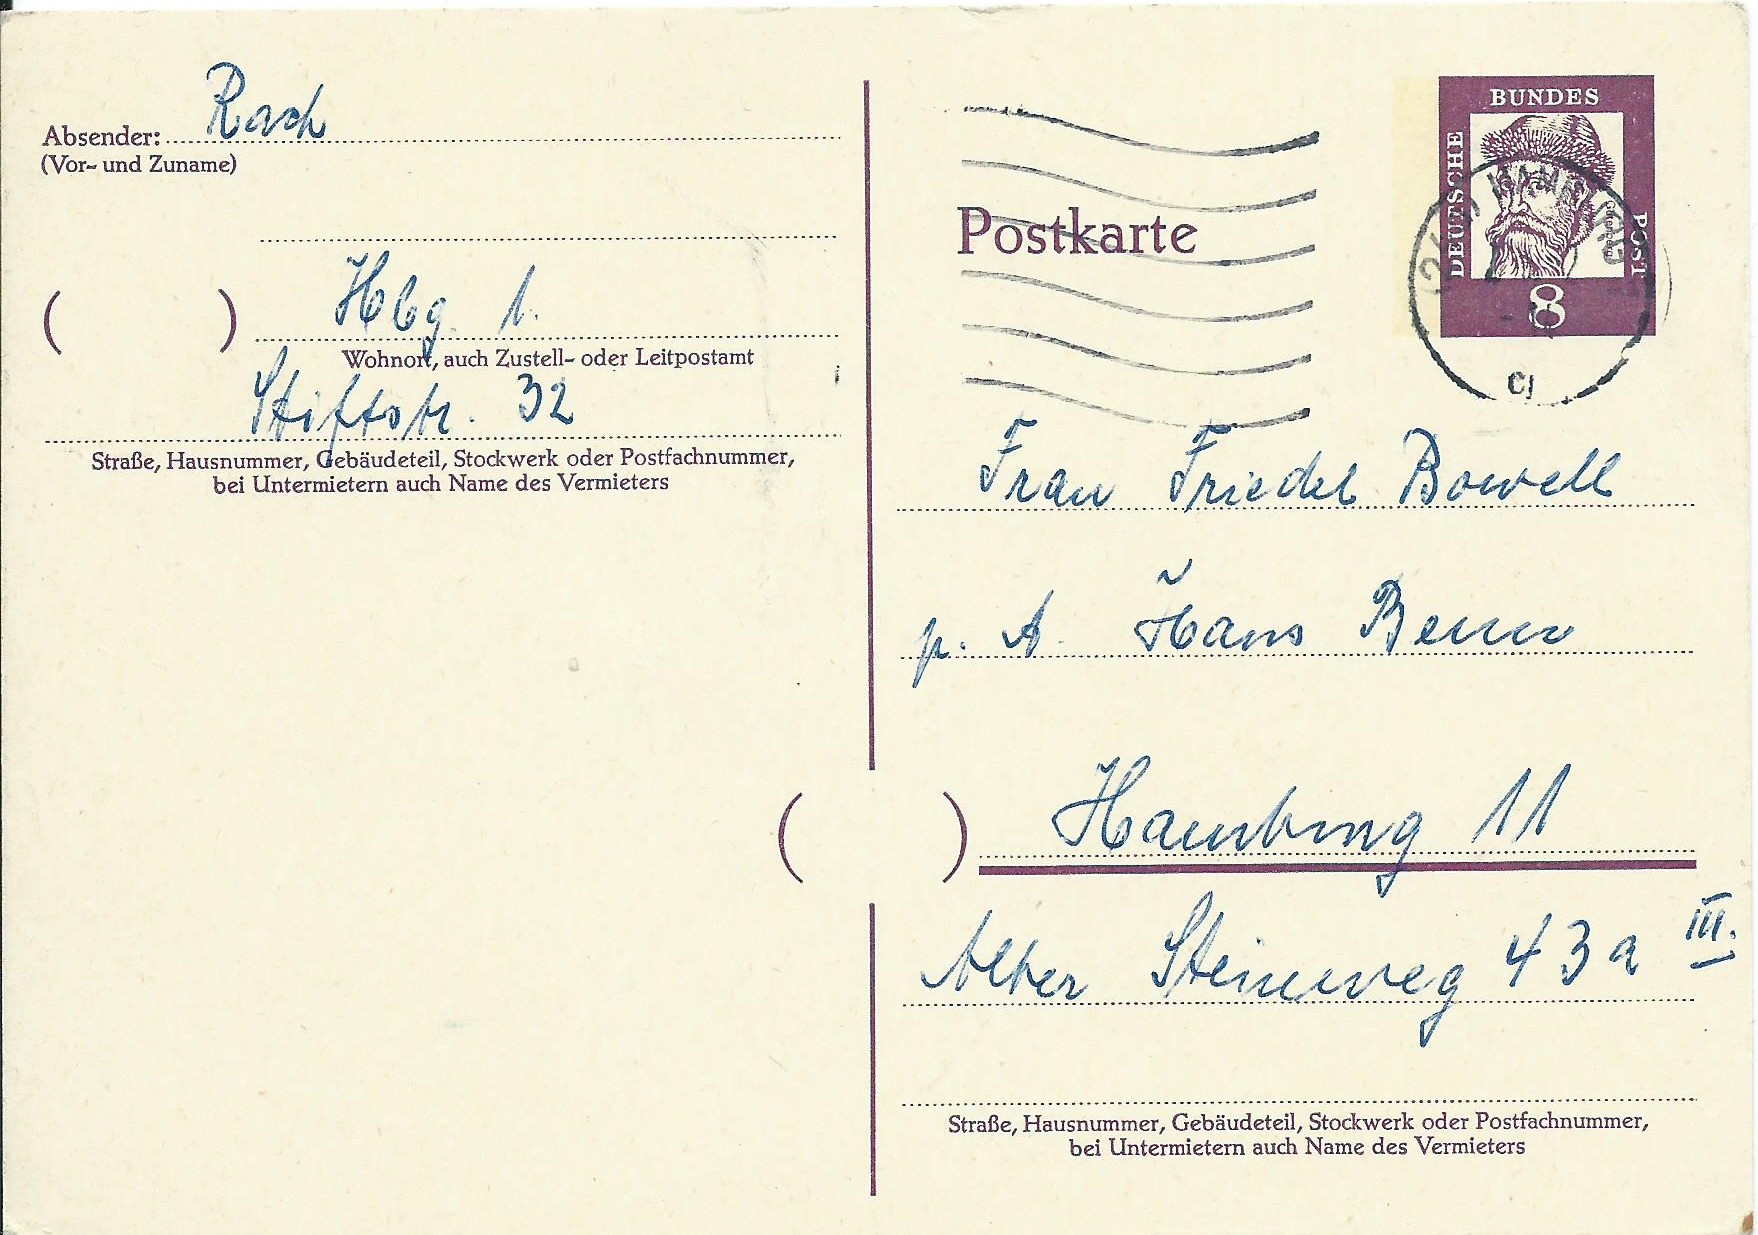 Absender: Rach
(Vor- und Zuname)
( ) Hbg. 1.
Wohnort, auch Zustell- oder Leitpostamt
Stiftstr. 32
Straße, Hausnummer, Gebäudeteil, Stockwerk oder Postfachnummer,
bei Untermietern auch Name des Vermieters
BUNDES
DEUTSCHE
POST
8
HAMBURG
Postkarte
Frau Friedel Bowell
p. A. Hans
( ) Hamburg 11
Alter Steinweg 43a III.
Straße, Hausnummer, Gebäudeteil, Stockwerk oder Postfachnummer,
bei Untermietern auch Name des Vermieters